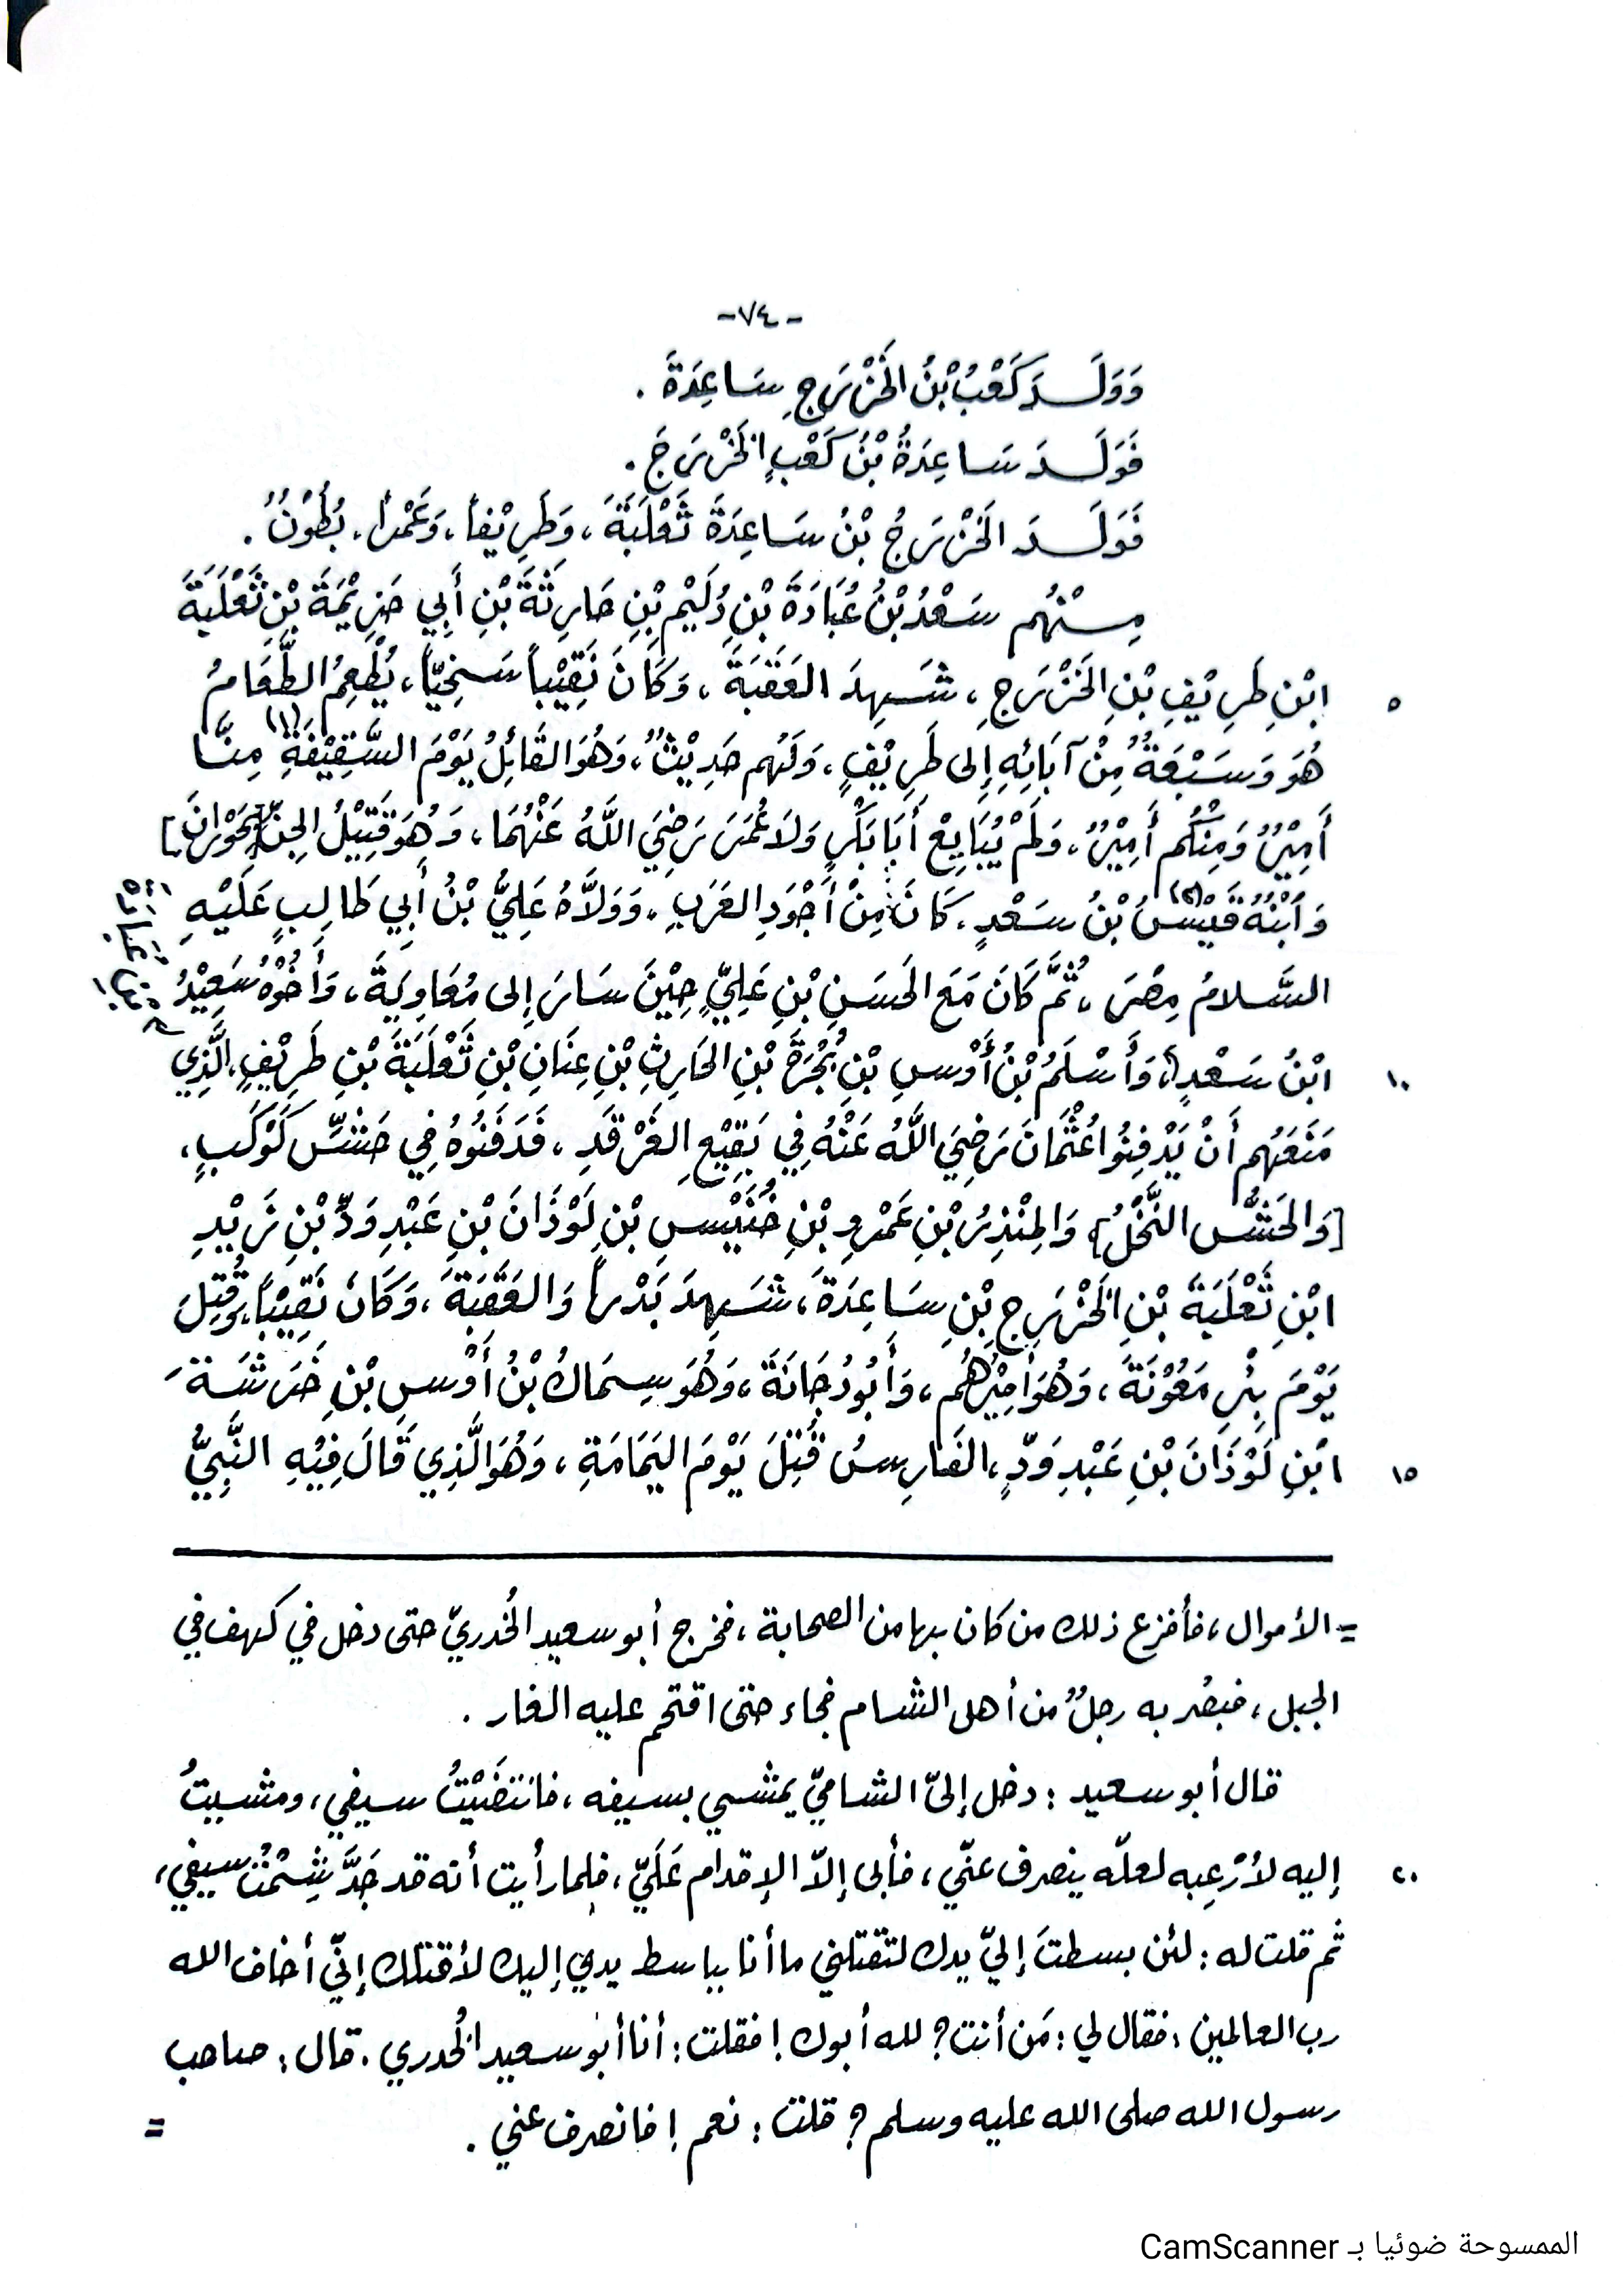 -٧٤-
وَوَلَدَ كَعْبُ بْنُ الخَزْرَجِ سَاعِدَةَ .
فَوَلَدَ سَاعِدَةُ بْنُ كَعْبٍ الخَزْرَجَ .
فَوَلَدَ الخَزْرَجُ بْنُ سَاعِدَةَ ثَعْلَبَةَ، وَطَرِيْفاً، وَعَمْراً، بُطُوْنٌ .
مِنْهُم سَعْدُ بْنُ عُبَادَةَ بْنِ دُلَيْمِ بْنِ حَارِثَةَ بْنِ أَبِي حَزِيْمَةَ بْنِ ثَعْلَبَةَ
٥ ابْنِ طَرِيْفِ بْنِ الخَزْرَجِ، شَهِدَ العَقَبَةَ، وَكَانَ نَقِيْباً سَخِيّاً، يُطْعِمُ الطَّعَامُ
هُوَ وَسَبْعَةٌ مِنْ آبَائِهِ إِلى طَرِيْفٍ، وَلَهُم حَدِيْثٌ، وَهُوَ القَائِلُ يَوْمَ السَّقِيْفَةِ(١) مِنَّا
أَمِيْرٌ وَمِنْكُم أَمِيْرٌ، وَلَمْ يُبَايِعْ أَبَا بَكْرٍ وَلَا عُمَرَ رَضِيَ اللَّهُ عَنْهُمَا، وَهُوَ قَتِيْلُ الجِنِّ [بِحَوْرَانَ]
وَابْنُهُ قَيْسُ(٢) بْنُ سَعْدٍ، كَانَ مِنْ أَجْوَدِ العَرَبِ، وَوَلَّاهُ عَلِيُّ بْنُ أَبِي طَالِبٍ عَلَيْهِ
السَّلَامُ مِصْرَ، ثُمَّ كَانَ مَعَ الحَسَنِ بْنِ عَلِيٍّ حِيْنَ سَارَ إِلى مُعَاوِيَةَ، وَأَخُوْهُ سَعِيْدُ
١٠ ابْنُ سَعْدٍ، وَأَسْلَمُ بْنُ أَوْسِ بْنِ بُجْرَةَ بْنِ الحَارِثِ بْنِ عِنَانِ بْنِ ثَعْلَبَةَ بْنِ طَرِيْفٍ، الَّذِي
مَنَعَهُم أَنْ يَدْفِنُوا عُثْمَانَ رَضِيَ اللَّهُ عَنْهُ فِي بَقِيْعِ الغَرْقَدِ، فَدَفَنُوْهُ فِي حَشِّ كَوْكَبٍ،
[وَالحَشُّ النَّخْلُ] وَالمُنْذِرُ بْنِ عَمْرِو بْنِ خُنَيْسِ بْنِ لَوْذَانَ بْنِ عَبْدِ وَدِّ بْنِ زَيْدِ
ابْنِ ثَعْلَبَةَ بْنِ الخَزْرَجِ بْنِ سَاعِدَةَ، شَهِدَ بَدْراً وَالعَقَبَةَ، وَكَانَ نَقِيْباً، وَقُتِلَ
يَوْمَ بِئْرِ مَعُوْنَةَ، وَهُوَ أَمِيْرُهُم، وَأَبُو دُجَانَةَ، وَهُوَ سِمَاكُ بْنُ أَوْسِ بْنِ خَرَشَةَ
١٥ ابْنِ لَوْذَانَ بْنِ عَبْدِ وَدٍّ، الفَارِسُ قُتِلَ يَوْمَ اليَمَامَةِ، وَهُوَ الَّذِي قَالَ فِيْهِ النَّبِيُّ
= الأموال، فأفزع ذلك من كان بها من الصحابة، فخرج أبو سعيد الخُدريّ حتى دخل في كهف في
الجبل، فبصُر به رجلٌ من أهل الشام فجاء حتى اقتحم عليه الغار .
قال أبو سعيد : دخل إليّ الشاميّ يمشي بسيفه، فانتضَيْتُ سيفي، ومشيتُ
٢٠ إليه لأُرْعِبه لعلّه ينصرف عنّي، فأبى إلاّ الإقدام عَلَيّ، فلما رأيت أنه قد جَدَّ شِمْتُ سيفي،
ثم قلت له : لئن بسطتَ إليّ يدك لتقتلني ما أنا بباسط يدي إليك لأقتلك إنّي أخاف الله
رب العالمين ؛ فقال لي : مَن أنت؟ لله أبوك! فقلت : أنا أبو سعيد الخُدري . قال : صاحب
رسول الله صلى الله عليه وسلم؟ قلت : نعم ! فانصرف عني .
=
الممسوحة ضوئيا بـ CamScanner